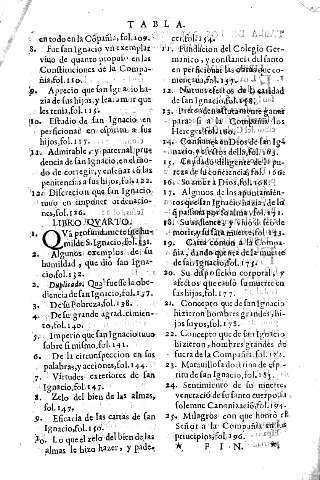 TABLA.
en todo en la Cõpañia, fol. 109.
8. Fue san Ignacio vn exemplar
viuo de quanto propuso en las
Constituciones de la Compa-
ñia. fol. 110.
9. Aprecio que san Ignacio ha-
zia de sus hijos, y el amor que
les tenia, fol. 115.
10. Estudio de san Ignacio en
perficionar en espiritu a sus
hijos, fol. 117.
12. Admirable, y paternal pru-
dencia de san Ignacio, en el mo-
do de corregir, y enseñar cõ las
penitencias a sus hijos, fol. 122.
12. Discrecion que san Ignacio
tuuo en imponer ordenacio-
nes, fol. 126.
LIBRO QVARTO.
1. QVã profundamẽte fue hu-
milde S. Ignacio, fol. 131.
2. Algunos exemplos de la
humildad, que dió san Igna-
cio, fol. 132.
2. Duplicado. Quã fuesse la obe-
diencia de san Ignacio, fol. 137.
3. De su Pobreza, fol. 138.
4. De su grande agradecimien-
to, fol. 140.
5. Imperio que san Ignacio tuuo
sobre si mismo, fol. 141.
6. De la circunspeccion en sus
palabras, y acciones, fol. 144.
7. Virtudes exteriores de san
Ignacio, fol. 147.
8. Zelo del bien de las almas,
fol. 147.
9. Eficacia de las cartas de san
Ignacio, fol. 150.
10. Lo que el zelo del bien de las
almas le hizo hazer, y pade-
cer, fol. 154.
11. Fundacion del Colegio Ger-
manico, y constancia del santo
en perficionar las obras que co-
mençaua, fol. 157.
12. Nueuos efectos de la caridad
de san Ignacio, fol. 158.
los
Hereges, fol. 160.
14. Confiança en Dios de san Ig-
nacio, y efectos della, fol. 163.
15. Cuydado diligente de la pu-
reza de su conciencia, fol. 166.
16. Su amor a Dios, fol. 168.
17. Algunos de los apuntamien-
tos que san Ignacio hazia, de lo
q̃ passaua por su alma, fol. 171.
18. Su ausencia, y viuo deseo de
morir, y su santa muerte, fol. 173.
19. Carta comun a la Compa-
ñia, dando quenta de la muerte
de san Ignacio, fol. 175.
20. Su disposicion corporal, y
afectos que causó su muerte en
sus hijos, fol. 177.
21. Concepto que de san Ignacio
hizieron hombres grandes, hi-
jos suyos, fol. 178.
22. Concepto que de san Ignacio
hizieron, hombres grandes de
fuera de la Compañia, fol. 182.
23. Marauillosa dotrina de espi-
ritu de san Ignacio, fol. 183.
24. Sentimiento de su muerte,
veneracio de su santo cuerpo, y su
solemne Canonizació, fol. 194.
25. Milagros con que honró el
Señor a la Compañia en sus
principios, fol. 196.
* FIN. *